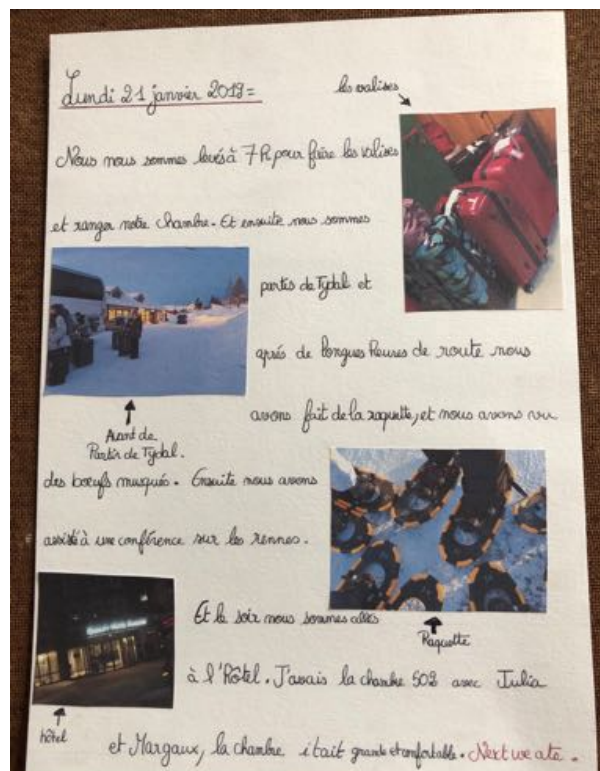 Lundi 21 janvier 2019=
les valises
Nous nous sommes levés à 7h pour faire les valises
et ranger notre chambre. Et ensuite nous sommes
partis de Tydal et
après de longues heures de route nous
avons fait de la raquette, et nous avons vu
Avant de
Partir de Tydal.
des bœufs musqués. Ensuite nous avons
assisté à une conférence sur les rennes.
Et le soir nous sommes allés
Raquette
à l'hôtel. J'avais la chambre 502 avec Julia
hôtel
et Margaux, la chambre était grande et confortable. Next we ate.